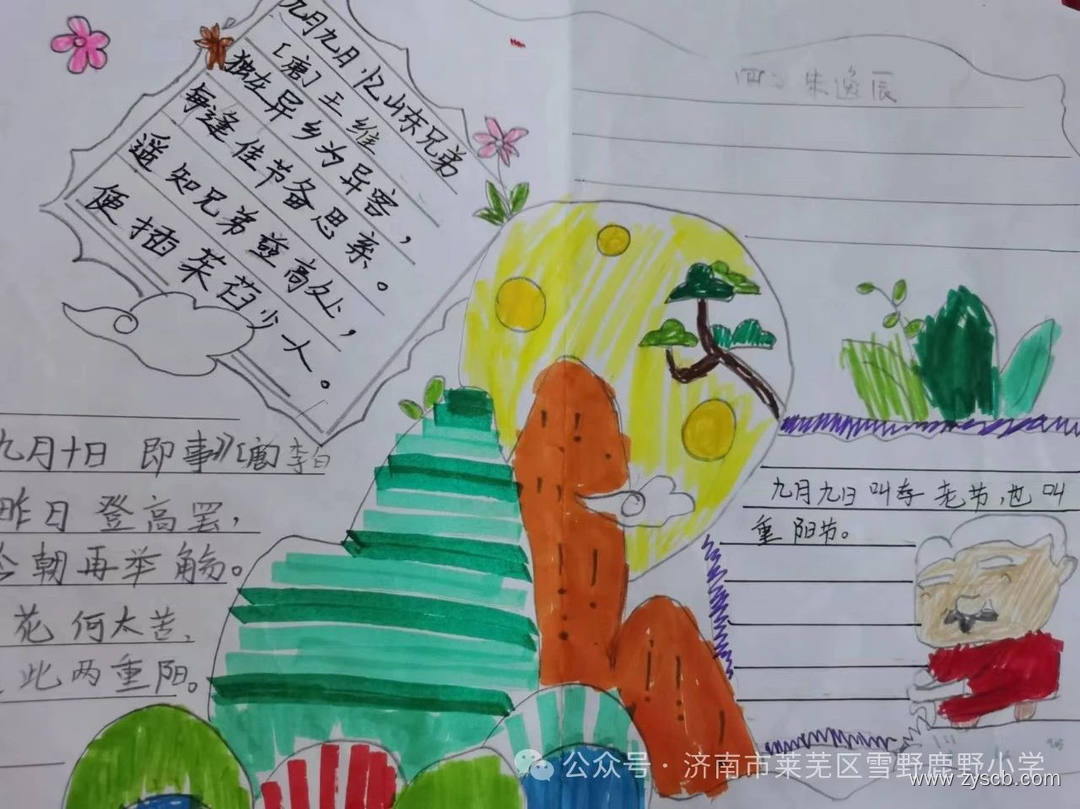 九月九月忆山东兄弟
〔唐〕王维
独在异乡为异客，
每逢佳节备思亲。
遥知兄弟登高处，
便插茱萸少一人。
九月十日 即事》〔唐〕李白
昨日登高罢，
今朝再举觞。
花何太苦，
此两重阳。
九月九日叫孝老节，也叫
重阳节。
公众号·济南市莱芜区雪野鹿野小学
www.zyscb.com